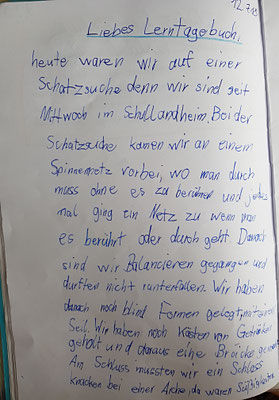 12.7.18
Liebes Lerntagebuch,
heute waren wir auf einer
Schatzsuche denn wir sind seit
Mittwoch im Schullandheim. Bei der
Schatzsuche kamen wir an einem
Spinnennetz vorbei, wo man durch
muss ohne es zu berühren und jedes
mal ging ein Netz zu wenn man
es berührt oder durch geht. Danach
sind wir Balancieren gegangen und
durften nicht runterfallen. Wir haben
danach noch blind Formen gelegt mit einem
Seil. Wir haben noch Kästen von Getränken
geholt und daraus eine Brücke
Am Schluss mussten wir ein Schloss
knacken bei einer Arche, da waren Süßigkeiten